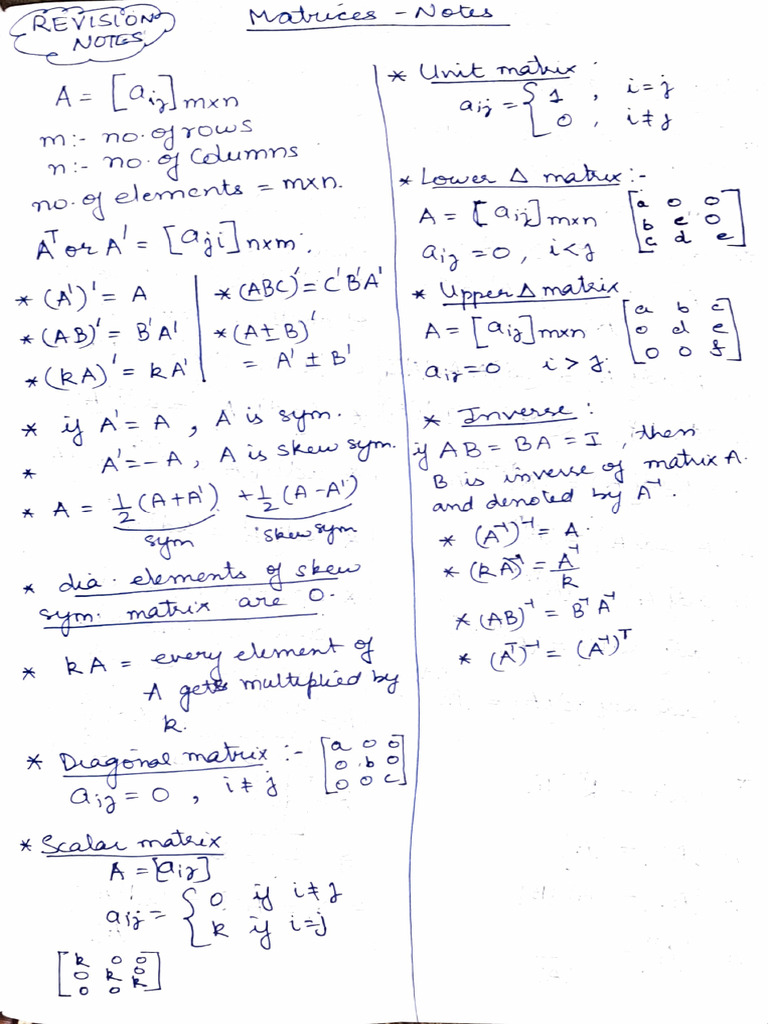 REVISION
NOTES
Matrices - Notes
A = [aij]m×n
m:- no. of rows
n:- no. of columns
no. of elements = m×n.
Aᵀ or A' = [aji]n×m.
* (A')' = A
* (AB)' = B'A'
* (kA)' = kA'
* (ABC)' = C'B'A'
* (A±B)'
= A' ± B'
* if A' = A , A is sym.
* A' = -A , A is skew sym.
* A = 1/2 (A+A') + 1/2 (A-A')
sym skew sym
* dia. elements of skew
sym. matrix are 0.
* kA = every element of
A gets multiplied by
k.
* Diagonal matrix :- [a 0 0
0 b 0
0 0 c]
aij = 0 , i ≠ j
* Scalar matrix
A = [aij]
aij = { 0 if i≠j
k if i=j
[k 0 0
0 k 0
0 0 k]
* Unit matrix :
aij = { 1 , i=j
0 , i≠j
* Lower Δ matrix :-
A = [aij]m×n [a 0 0
b e 0
c d e]
aij = 0 , i<j
* Upper Δ matrix
A = [aij]m×n [a b c
0 d e
0 0 f]
aij = 0 i > j.
* Inverse :
if AB = BA = I , then
B is inverse of matrix A.
and denoted by A⁻¹.
* (A⁻¹)⁻¹ = A.
* (kA)⁻¹ = A⁻¹/k
* (AB)⁻¹ = B⁻¹A⁻¹
* (Aᵀ)⁻¹ = (A⁻¹)ᵀ